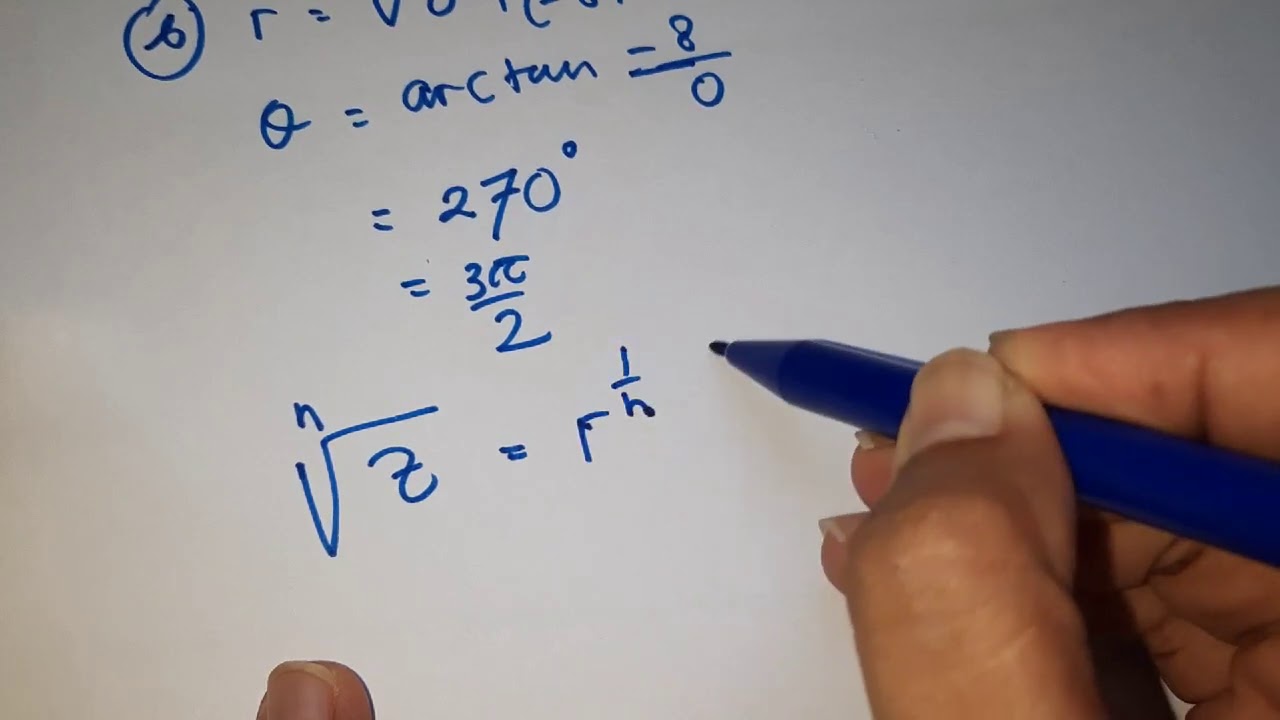 (b) r = √0
θ = arctan -8/0
= 270°
= 3π/2
ⁿ√z = r^(1/n)